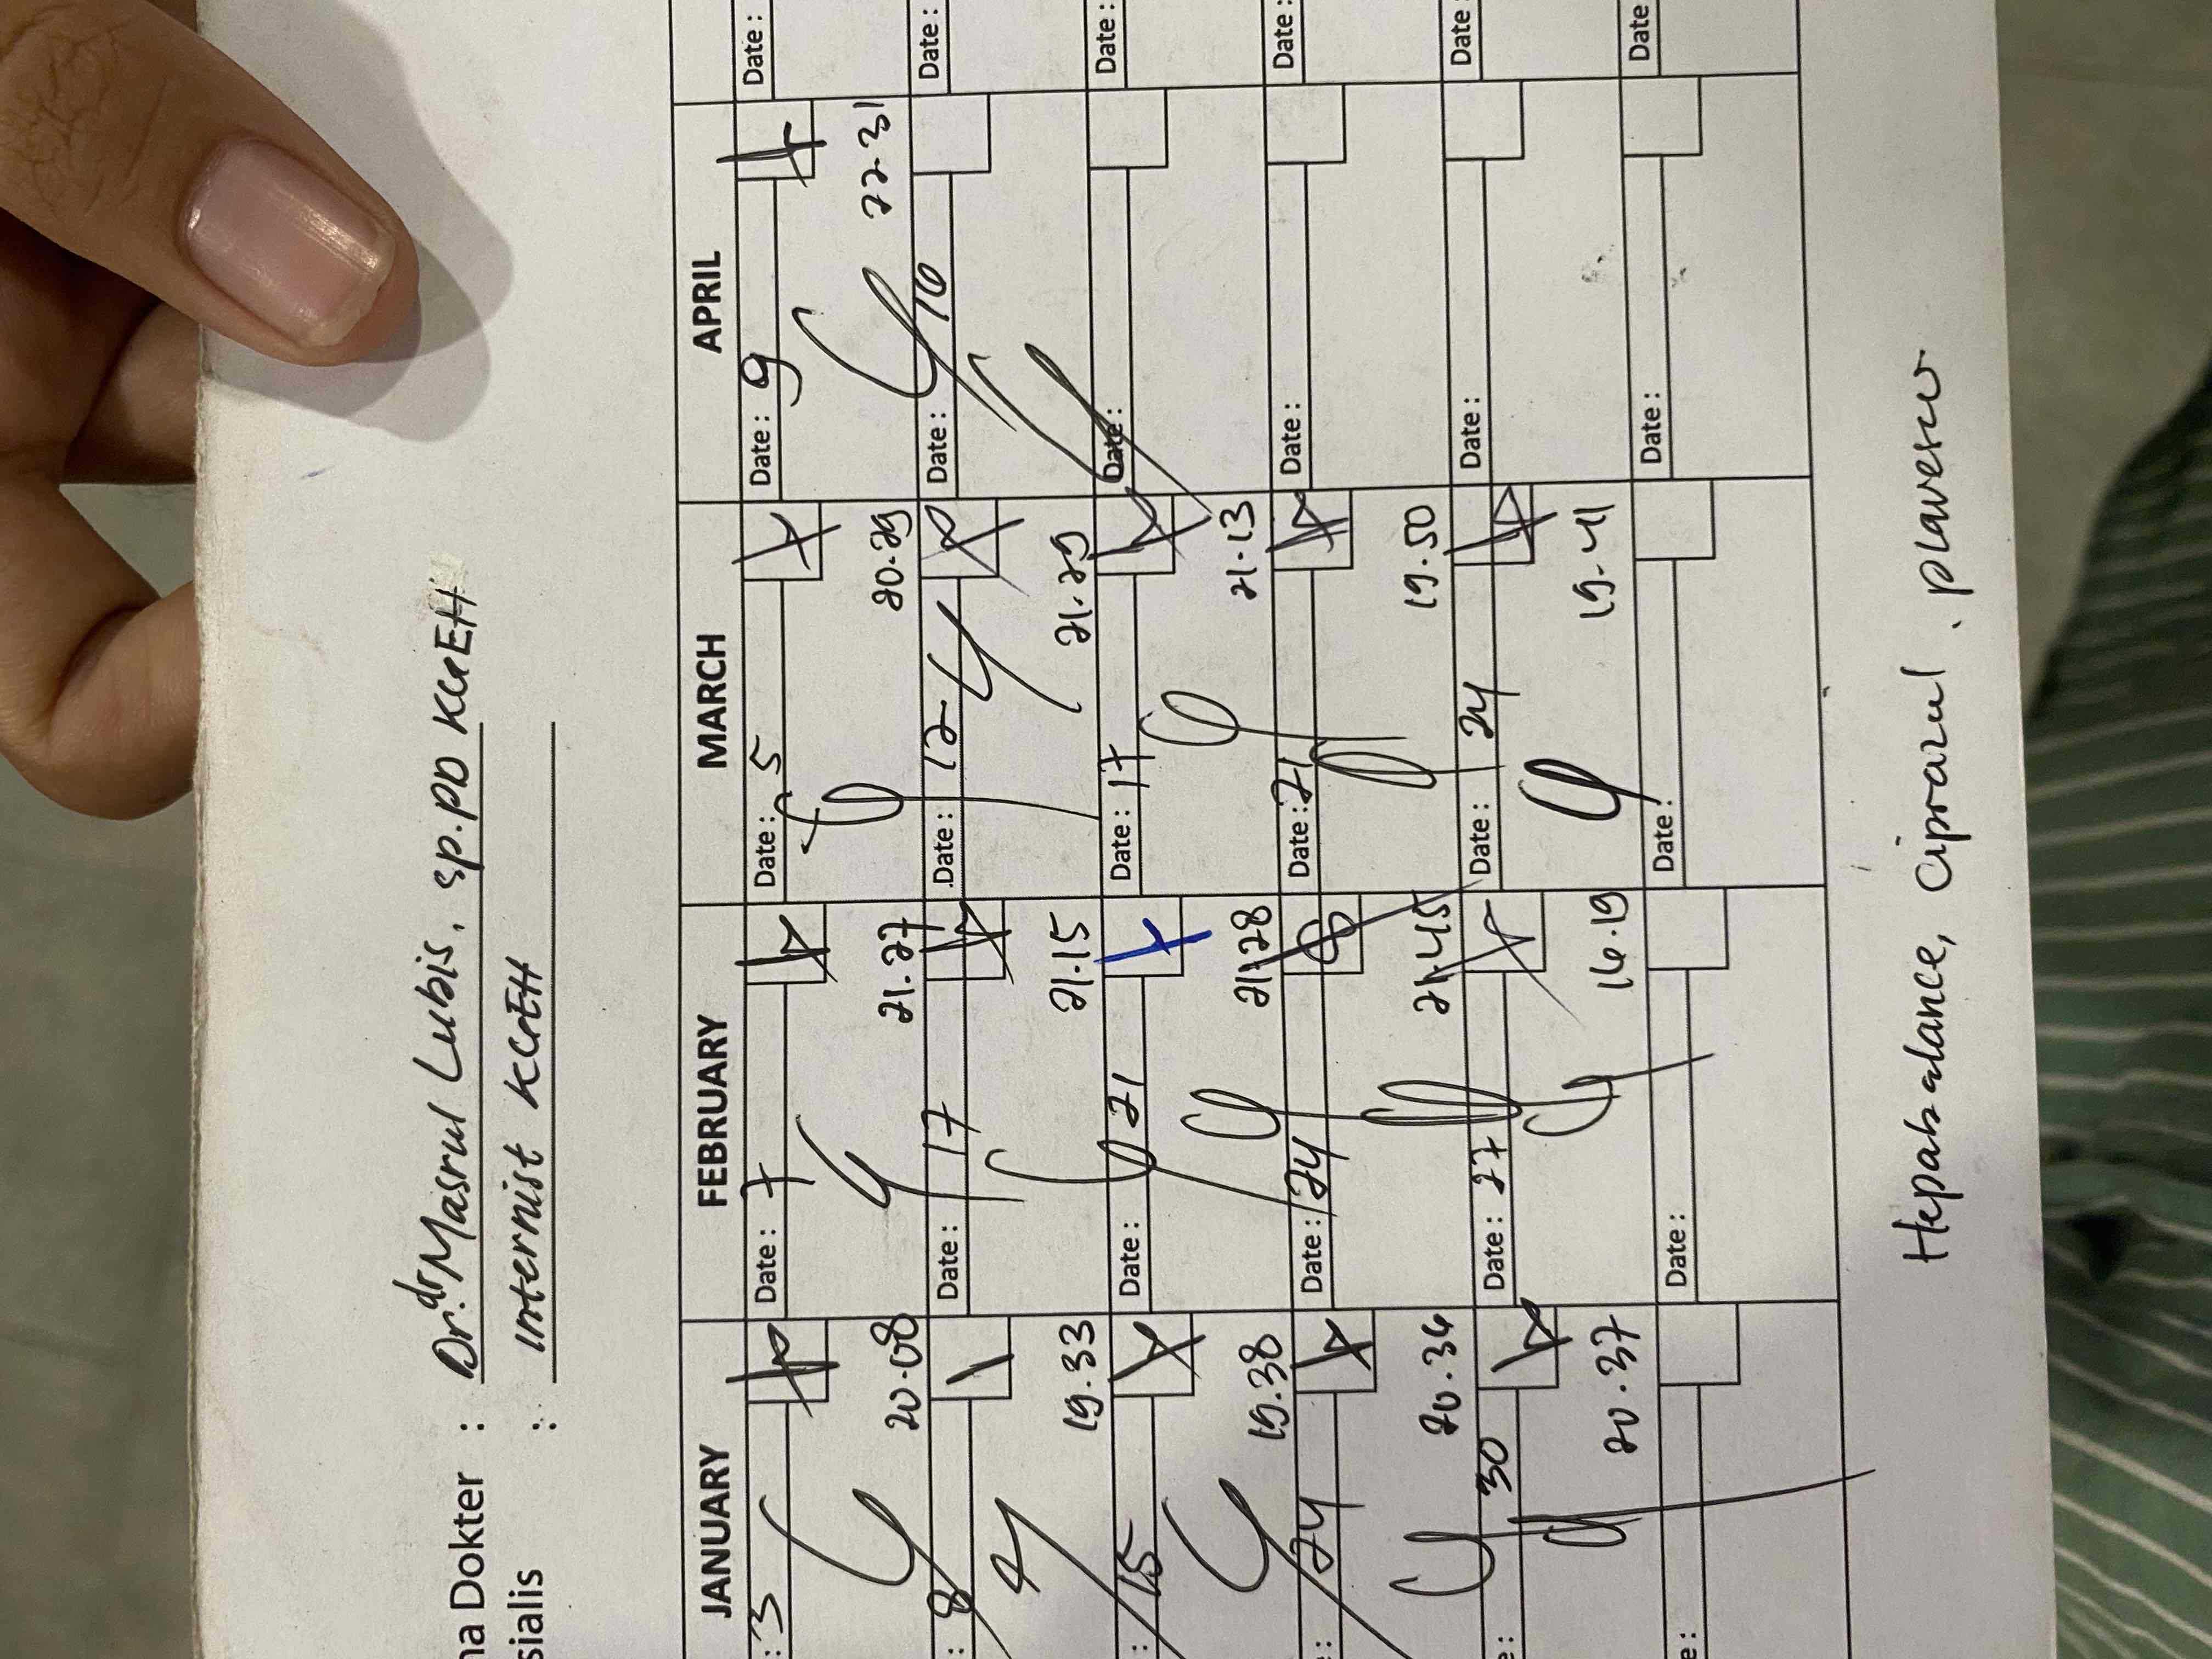 na Dokter : Dr. dr Masrul Lubis, sp.PD KGEH
sialis : Internist KGEH
JANUARY FEBRUARY MARCH APRIL
: 3 Date : 7 Date : 5 Date : 9 Date :
20.08 21.27 20.29 22.31
: 8 Date : 17 Date : 12 Date : 10 Date :
19.33 21.15 21.29
: 15 Date : 21 Date : 17 Date : Date :
19.38 21.28 21.13
: 24 Date : 24 Date : 21 Date : Date :
20.36 21.45 19.50
e : 30 Date : 27 Date : 24 Date : Date :
20.37 16.19 19.41
e : Date : Date : Date : Date
Hepabalance, Ciprazul. plavesco